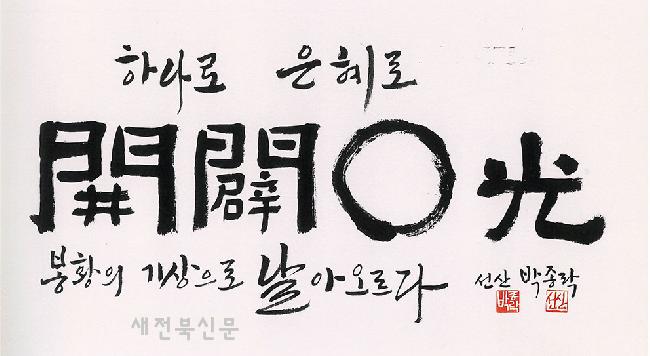 하나로 은혜로
開闢○光
봉황의 기상으로 날아오르다
선산 박종락
새전북신문